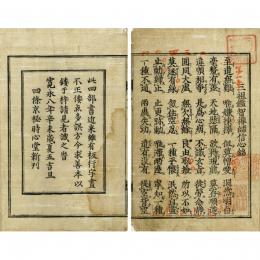 三祖鑑智禪師信心銘
至道無難 唯嫌揀擇 但莫憎愛 洞然明白
毫釐有差 天地懸隔 欲得現前 莫存順逆
違順相爭 是為心病 不識玄旨 徒勞念靜
圓同太虛 無欠無餘 良由取捨 所以不如
莫逐有緣 勿住空忍 一種平懷 泯然自盡
止動歸止 止更彌動 唯滯兩邊 寧知一種
一種不通 兩處失功 遣有沒有 從空背空
此四部書近來雖有板行字畫
不正倭点多誤方今求善本以
鋟于梓請見者識之旹
寛永八年辛未歳夏五吉旦
四條京極時心堂新刊